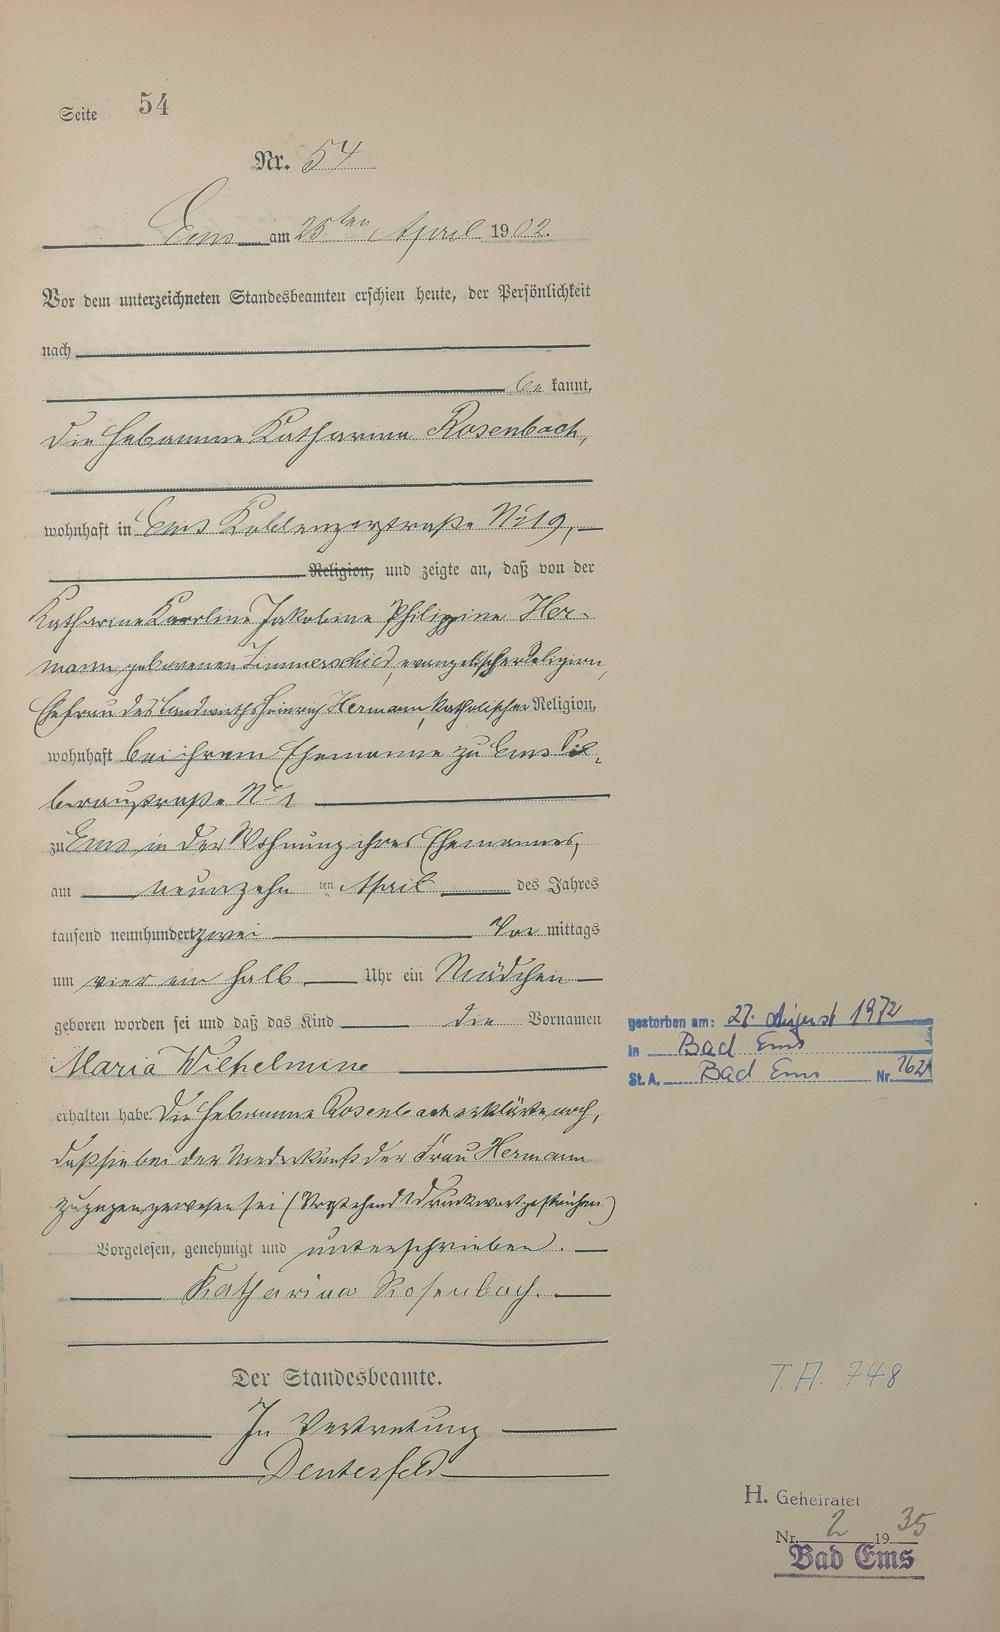 Seite 54
Nr. 54
Ems am 25ten April 1902.
Vor dem unterzeichneten Standesbeamten erschien heute, der Persönlichkeit
nach
be kannt,
die Hebamme Katharina Rosenbach,
wohnhaft in Ems Koblenzerstraße No 19,
Religion, und zeigte an, daß von der
Katharine Karoline Jakobine Philippine Her-
mann geborenen Zimmerschied, evangelischer Religion,
Ehefrau des Landwirths Heinrich Hermann, katholischer Religion,
wohnhaft bei ihrem Ehemanne zu Ems Sil-
beraustraße No 1
zu Ems in der Wohnung ihres Ehemannes,
am neunzehn ten April des Jahres
tausend neunhundert zwei Vor mittags
um vier ein halb Uhr ein Mädchen
geboren worden sei und daß das Kind die Vornamen
Maria Wilhelmine
erhalten habe. Die Hebamme Rosenbach erklärte noch,
daß sie bei der Niederkunft der Frau Hermann
zugegen gewesen sei (Vorstehend 1 Druckwort gestrichen)
Vorgelesen, genehmigt und unterschrieben.
Katharina Rosenbach.
Der Standesbeamte.
In Vertretung
gestorben am: 27. August 1972
in Bad Ems
St. A. Bad Ems Nr.
T. A. 748
H. Geheiratet
Nr. 2 1935
Bad Ems